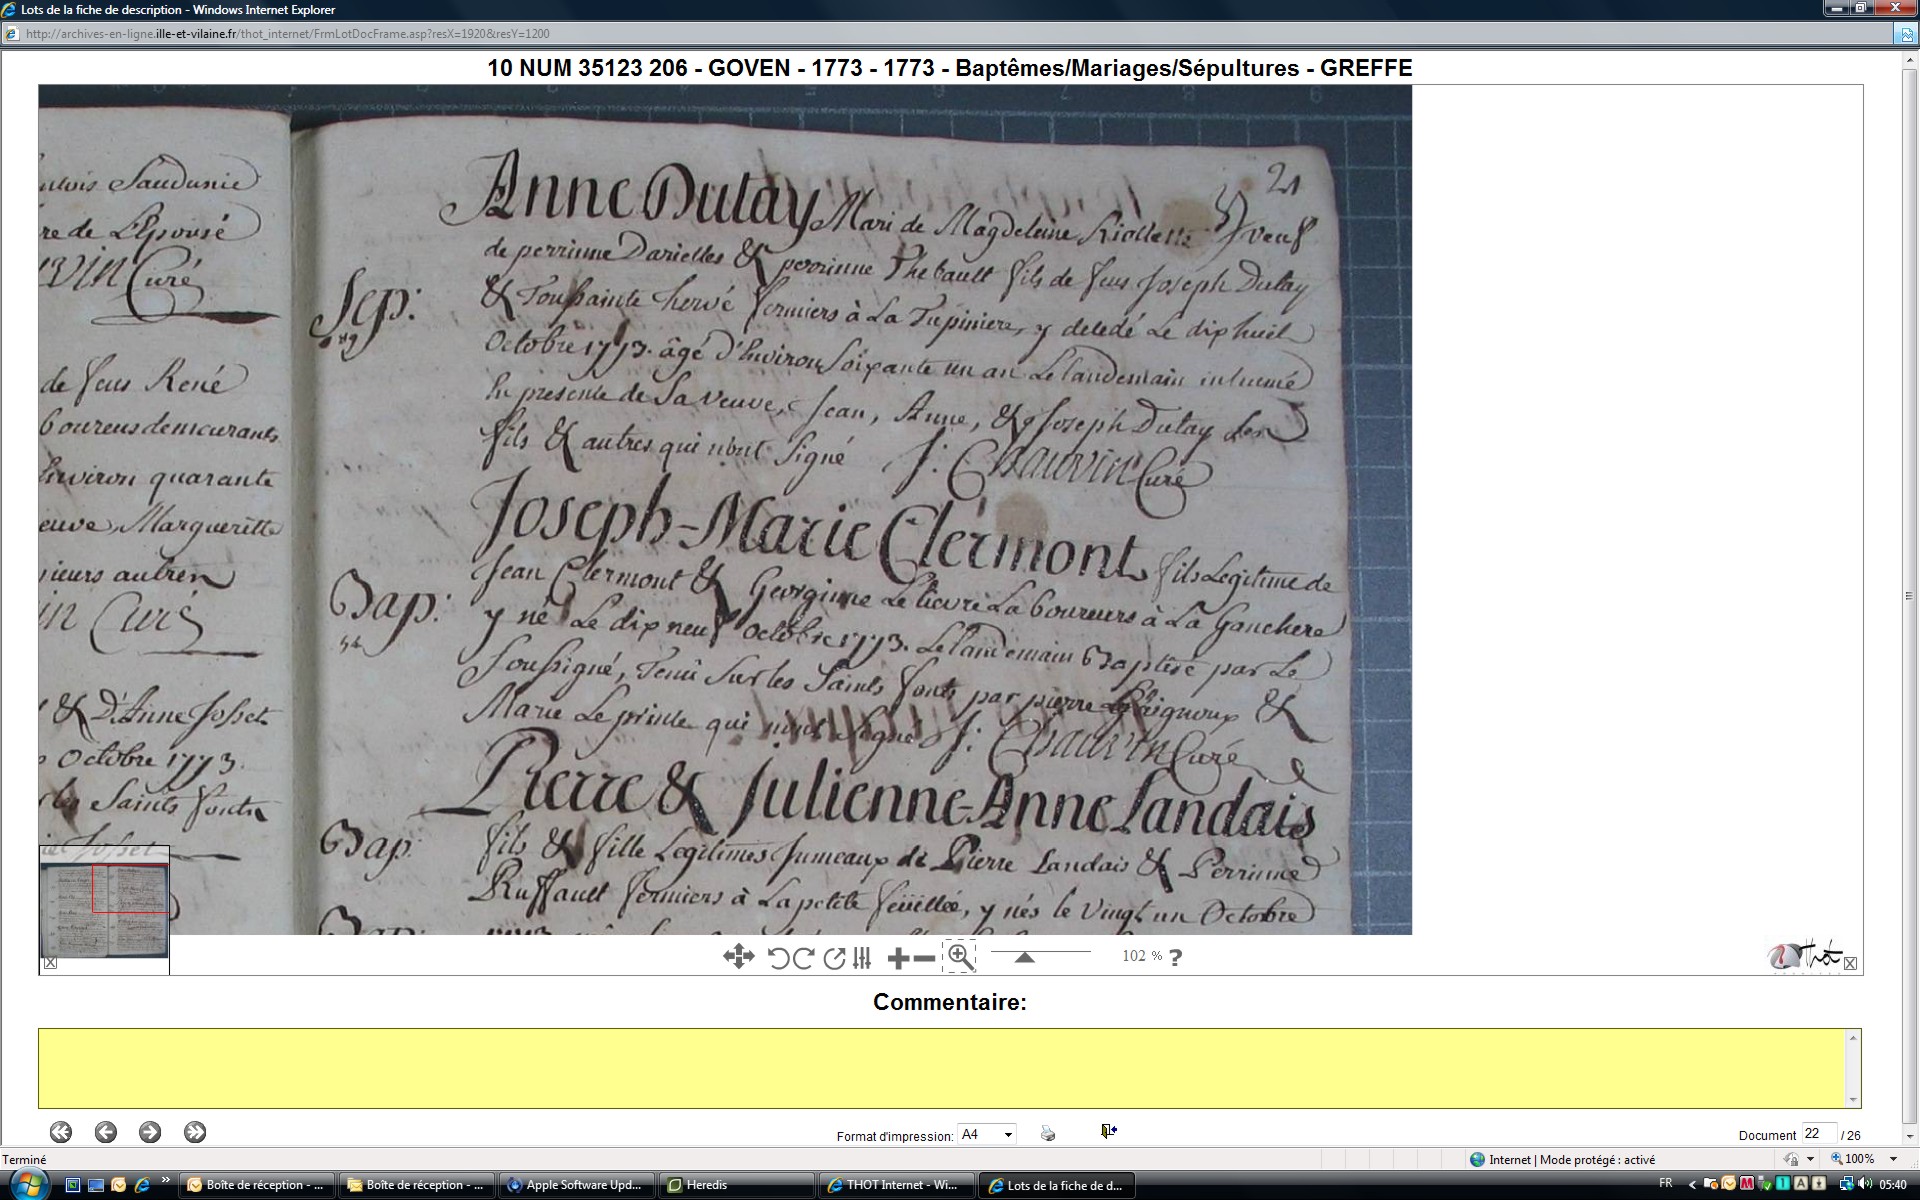 Lots de la fiche de description - Windows Internet Explorer
http://archives-en-ligne.ille-et-vilaine.fr/thot_internet/FrmLotDocFrame.asp?resX=1920&resY=1200
10 NUM 35123 206 - GOVEN - 1773 - 1773 - Baptêmes/Mariages/Sépultures - GREFFE
re de L'Epousé
Curé
de feus René
Laboureurs demeurants
Environ quarante
Margueritte
autres
Curé
& D'Anne Josset
Octobre 1773.
Saints fonts
Josset
21
Anne Dutay Mari de Magdeleine veuf
de perrinne Darielles & perrinne Thebault fils de feus Joseph Dutay
Sep:
& Toussainte hervé fermiers à La Tupiniere, y décédé Le dix huit
Octobre 1773. âgé d'Environ Soixante un an Le landemain inhumé
En presence de Sa veuve, Jean, Anne, & Joseph Dutay Ses
fils & autres qui n'ont Signé J: Chauvin Curé
Joseph-Marie Clermont fils Legitime de
Jean Clermont & Georginne Lelievre Laboureurs à La Ganchere
Bap:
y né Le dix neuf Octobre 1773. Le landemain Baptisé par Le
Soussigné, Tenu Sur les Saints fonts par pierre &
Marie Leprince qui n'ont Signé J: Chauvin Curé
Pierre & Julienne-Anne Landais
Bap:
fils & fille Legitimes Jumeaux de Pierre Landais & Perrinne
Ruffault fermiers à La petite feüillée, y nés le vingt un Octobre
Bap:
102 % ?
Thot
Commentaire:
Format d'impression: A4
Document 22 / 26
Terminé
Internet | Mode protégé : activé
100%
Boîte de réception - ...
Boîte de réception - ...
Apple Software Upd...
Heredis
THOT Internet - Wi...
Lots de la fiche de d...
FR
05:40